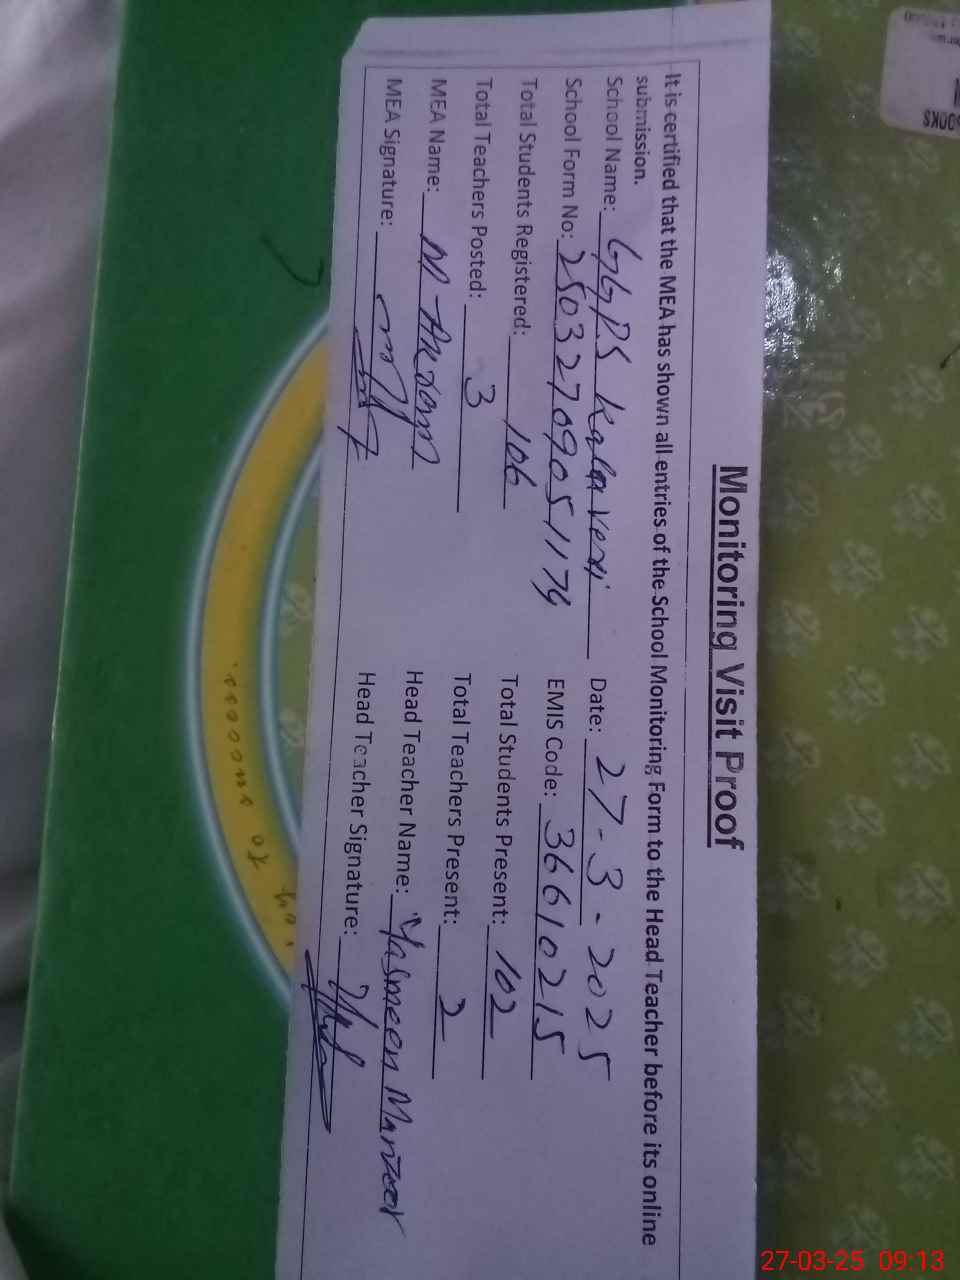 Monitoring Visit Proof
It is certified that the MEA has shown all entries of the School Monitoring Form to the Head Teacher before its online
submission.
School Name: GGPS Kalar Veri Date: 27-3-2025
School Form No: 25032709051174 EMIS Code: 36610215
Total Students Registered: 106 Total Students Present: 102
Total Teachers Posted: 3 Total Teachers Present: 2
MEA Name: M Akram Head Teacher Name: Yasmeen Manzoor
MEA Signature: Head Teacher Signature:
27-03-25 09:13